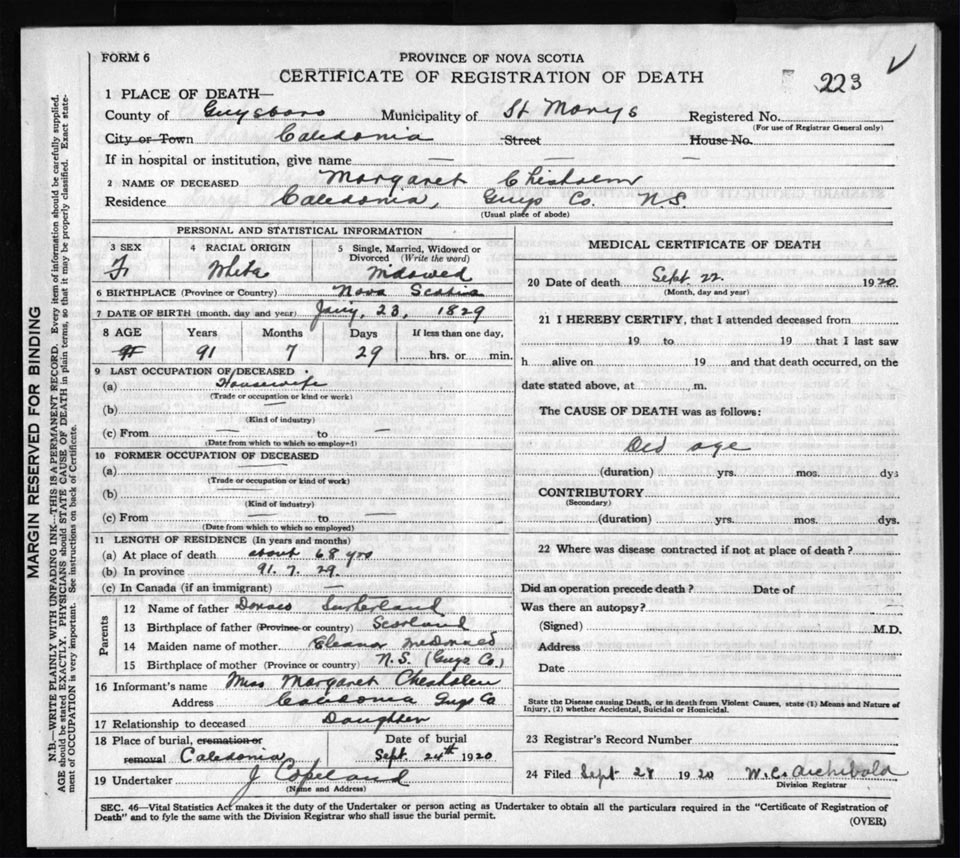 FORM 6
PROVINCE OF NOVA SCOTIA
CERTIFICATE OF REGISTRATION OF DEATH
223
1 PLACE OF DEATH—
County of Guysboro Municipality of St Marys Registered No.
(For use of Registrar General only)
City or Town Caledonia Street House No.
If in hospital or institution, give name — — —
2 NAME OF DECEASED Margaret Chisholm
Residence Caledonia, Guys Co. N.S.
(Usual place of abode)
PERSONAL AND STATISTICAL INFORMATION
3 SEX 4 RACIAL ORIGIN 5 Single, Married, Widowed or Divorced (Write the word)
F White Widowed
6 BIRTHPLACE (Province or Country) Nova Scotia
7 DATE OF BIRTH (month, day and year) Jany, 23, 1829
8 AGE Years Months Days If less than one day,
91 7 29 hrs. or min.
9 LAST OCCUPATION OF DECEASED
(a) Housewife
(Trade or occupation or kind or work)
(b) —
(Kind of industry)
(c) From — to —
(Date from which to which so employed)
10 FORMER OCCUPATION OF DECEASED
(a) —
(Trade or occupation or kind of work)
(b) —
(Kind of industry)
(c) From — to —
(Date from which to which employed)
11 LENGTH OF RESIDENCE (In years and months)
(a) At place of death about 68 yrs
(b) In province 91. 7. 29.
(c) In Canada (if an immigrant) —
Parents
12 Name of father Donald Sutherland
13 Birthplace of father (Province or country) Scotland
14 Maiden name of mother Eleanor McDonald
15 Birthplace of mother (Province or country) N.S. (Guys Co,)
16 Informant's name Miss Margaret Chisholm
Address Caledonia Guys Co
17 Relationship to deceased Daughter
18 Place of burial, cremation or Date of burial
removal Caledonia Sept. 24th 1920
19 Undertaker J Copeland
(Name and Address)
MEDICAL CERTIFICATE OF DEATH
20 Date of death Sept. 22. 1920
(Month, day and year)
21 I HEREBY CERTIFY, that I attended deceased from
19 to 19 that I last saw
h alive on 19 and that death occurred, on the
date stated above, at , m.
The CAUSE OF DEATH was as follows:
Old age
(duration) yrs. mos. dys
CONTRIBUTORY
(Secondary)
(duration) yrs. mos. dys.
22 Where was disease contracted if not at place of death?
Did an operation precede death? Date of
Was there an autopsy?
(Signed) M.D.
Address
Date
State the Disease causing Death, or in death from Violent Causes, state (1) Means and Nature of
Injury, (2) whether Accidental, Suicidal or Homicidal.
23 Registrar's Record Number
24 Filed Sept 28 1920 W. C. Archibald
Division Registrar
SEC. 46—Vital Statistics Act makes it the duty of the Undertaker or person acting as Undertaker to obtain all the particulars required in the "Certificate of Registration of
Death" and to fyle the same with the Division Registrar who shall issue the burial permit.
(OVER)
MARGIN RESERVED FOR BINDING
N.B.—WRITE PLAINLY WITH UNFADING INK—THIS IS A PERMANENT RECORD. Every item of information should be carefully supplied.
AGE should be stated EXACTLY. PHYSICIANS should STATE CAUSE OF DEATH in plain terms, so that it may be properly classified. Exact state-
ment of OCCUPATION is very important. See instructions on back of Certificate.